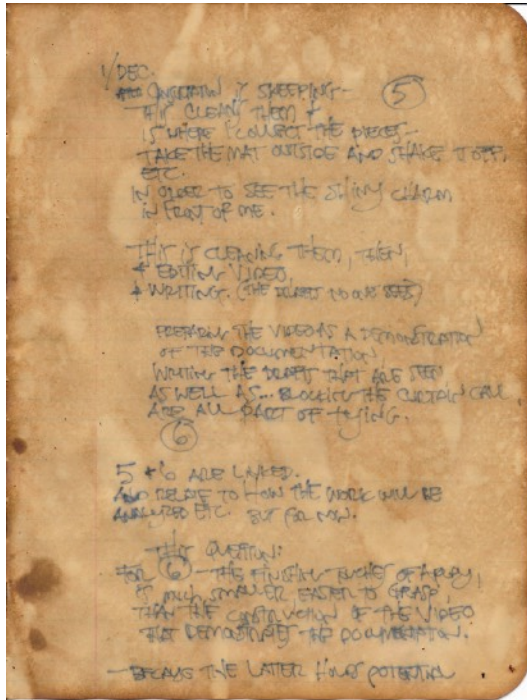 1/DEC.
IS SWEEPING— 5
THIS CLEANS THEM &
IS WHERE I COLLECT THE PIECES—
TAKE THE MAT OUTSIDE AND SHAKE IT OFF,
ETC.
IN ORDER TO SEE THE SHINY CHARM
IN FRONT OF ME.
THIS IS CLEANING THEM, THEN,
& EDITING VIDEO,
& WRITING. (THE DRAFTS NO ONE SEES)
PREPARING THE VIDEO AS A DEMONSTRATION
OF THE DOCUMENTATION,
WRITING THE DRAFTS THAT ARE SEEN
AS WELL AS... BLOCKING THE CURTAIN CALL,
ARE ALL PART OF TYING.
6
5 & 6 ARE LINKED.
AND RELATE TO HOW THE WORK WILL BE
ANALYZED ETC. BUT FOR NOW.
THIS QUESTION:
FOR 6 — THE FINISHING TOUCHES OF A PLAY,
IS MUCH SMALLER EASIER TO GRASP,
THAN THE CONSTRUCTION OF THE VIDEO
THAT DEMONSTRATES THE DOCUMENTATION.
—BECAUSE THE LATTER HOLDS POTENTIAL